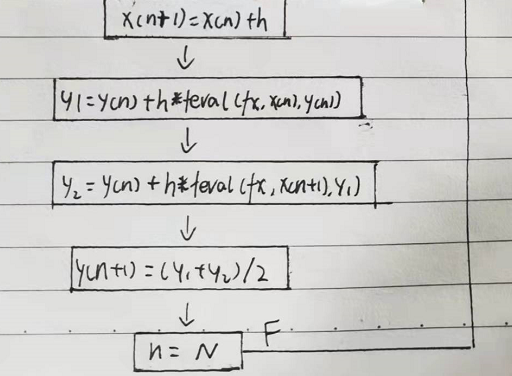 x(n+1)=x(n)+h
y1=y(n)+h*feval(fx,x(n),y(n))
y2=y(n)+h*feval(fx,x(n+1),y1)
y(n+1)=(y1+y2)/2
n=N
F